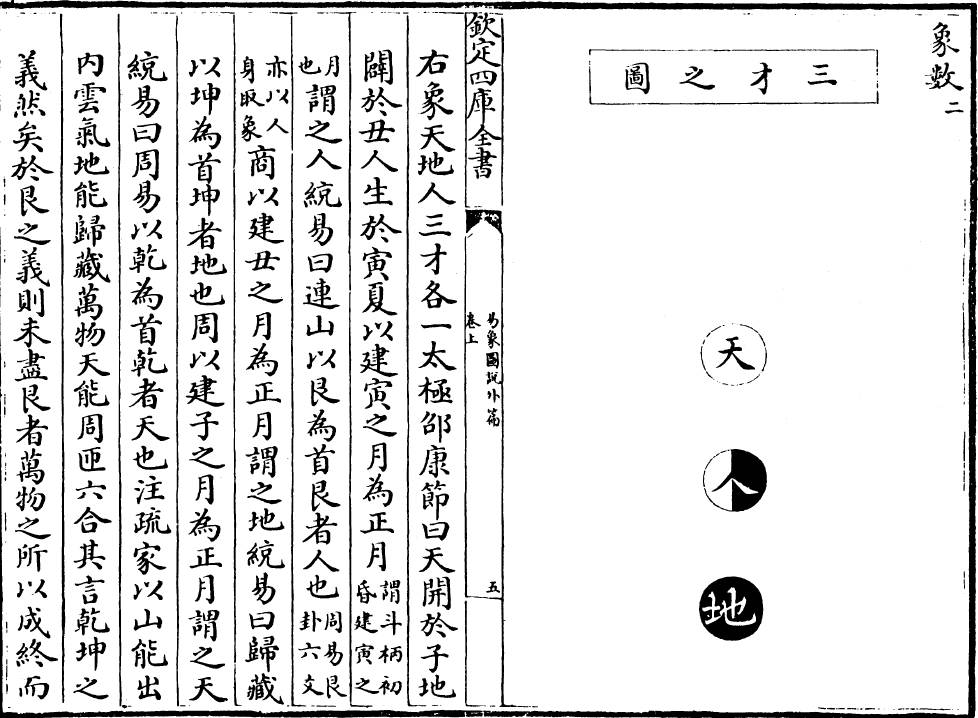 象數二
三才之圖
天
人
地
欽定四庫全書
易象圖說外篇
卷上
五
右象天地人三才各一太極邵康節曰天開於子地
闢於丑人生於寅夏以建寅之月為正月謂斗柄初昏建寅之
月也謂之人統易曰連山以艮為首艮者人也周易艮卦六爻
亦以人身取象商以建丑之月為正月謂之地統易曰歸藏
以坤為首坤者地也周以建子之月為正月謂之天
統易曰周易以乾為首乾者天也注疏家以山能出
內雲氣地能歸藏萬物天能周匝六合其言乾坤之
義然矣於艮之義則未盡艮者萬物之所以成終而